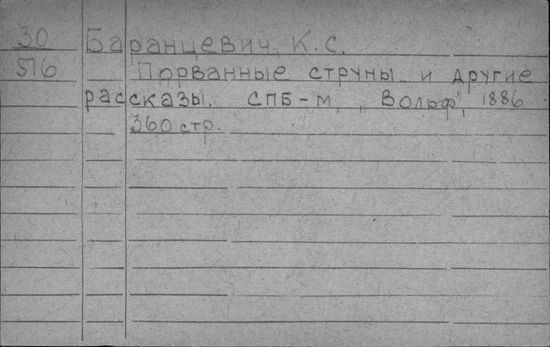 30 Баранцевич, К. С.
516 Порванные струны и другие
рассказы. СПБ-М, „Вольф", 1886
360 стр.